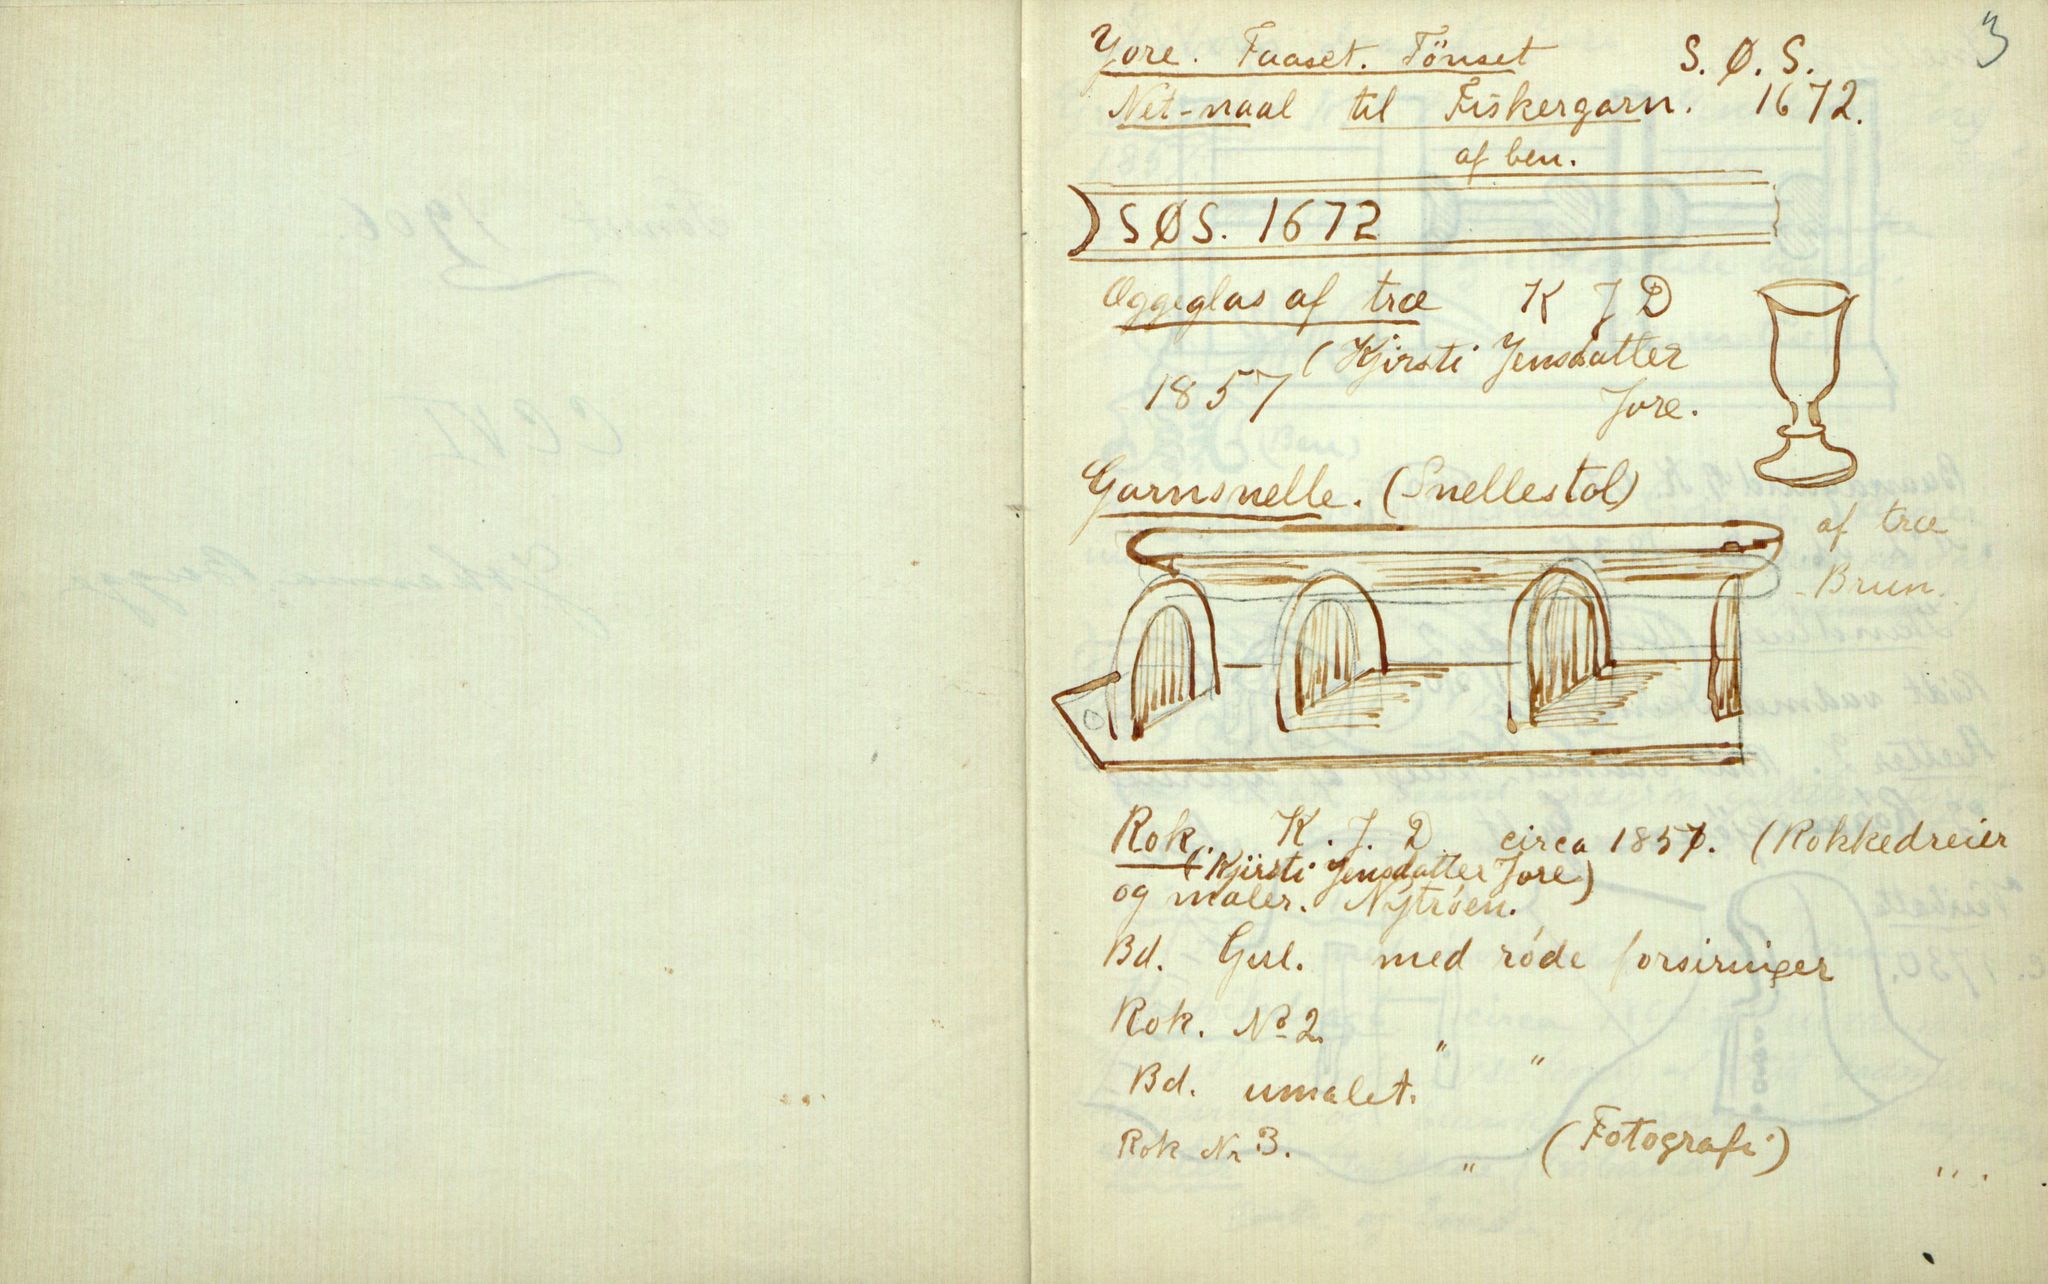 3
Jore. Faaset. Tönset S. Ø. S.
Net-naal til Fiskergarn. 1672.
af ben.
SØS. 1672
Æggeglas af træ K J D
(Kjirsti Jensdatter
1857 Jore.
Garnsnelle. (Snellestol)
af træ
Brun.
Rok. K. J. D. circa 1857. (Rokkedreier
(Kjirsti Jensdatter Jore)
og maler. Nÿtrøen.
Bd. Gul. med røde forsiringer
Rok. No 2. " "
Bd. umalet.
Rok Nr 3. " (Fotografi)